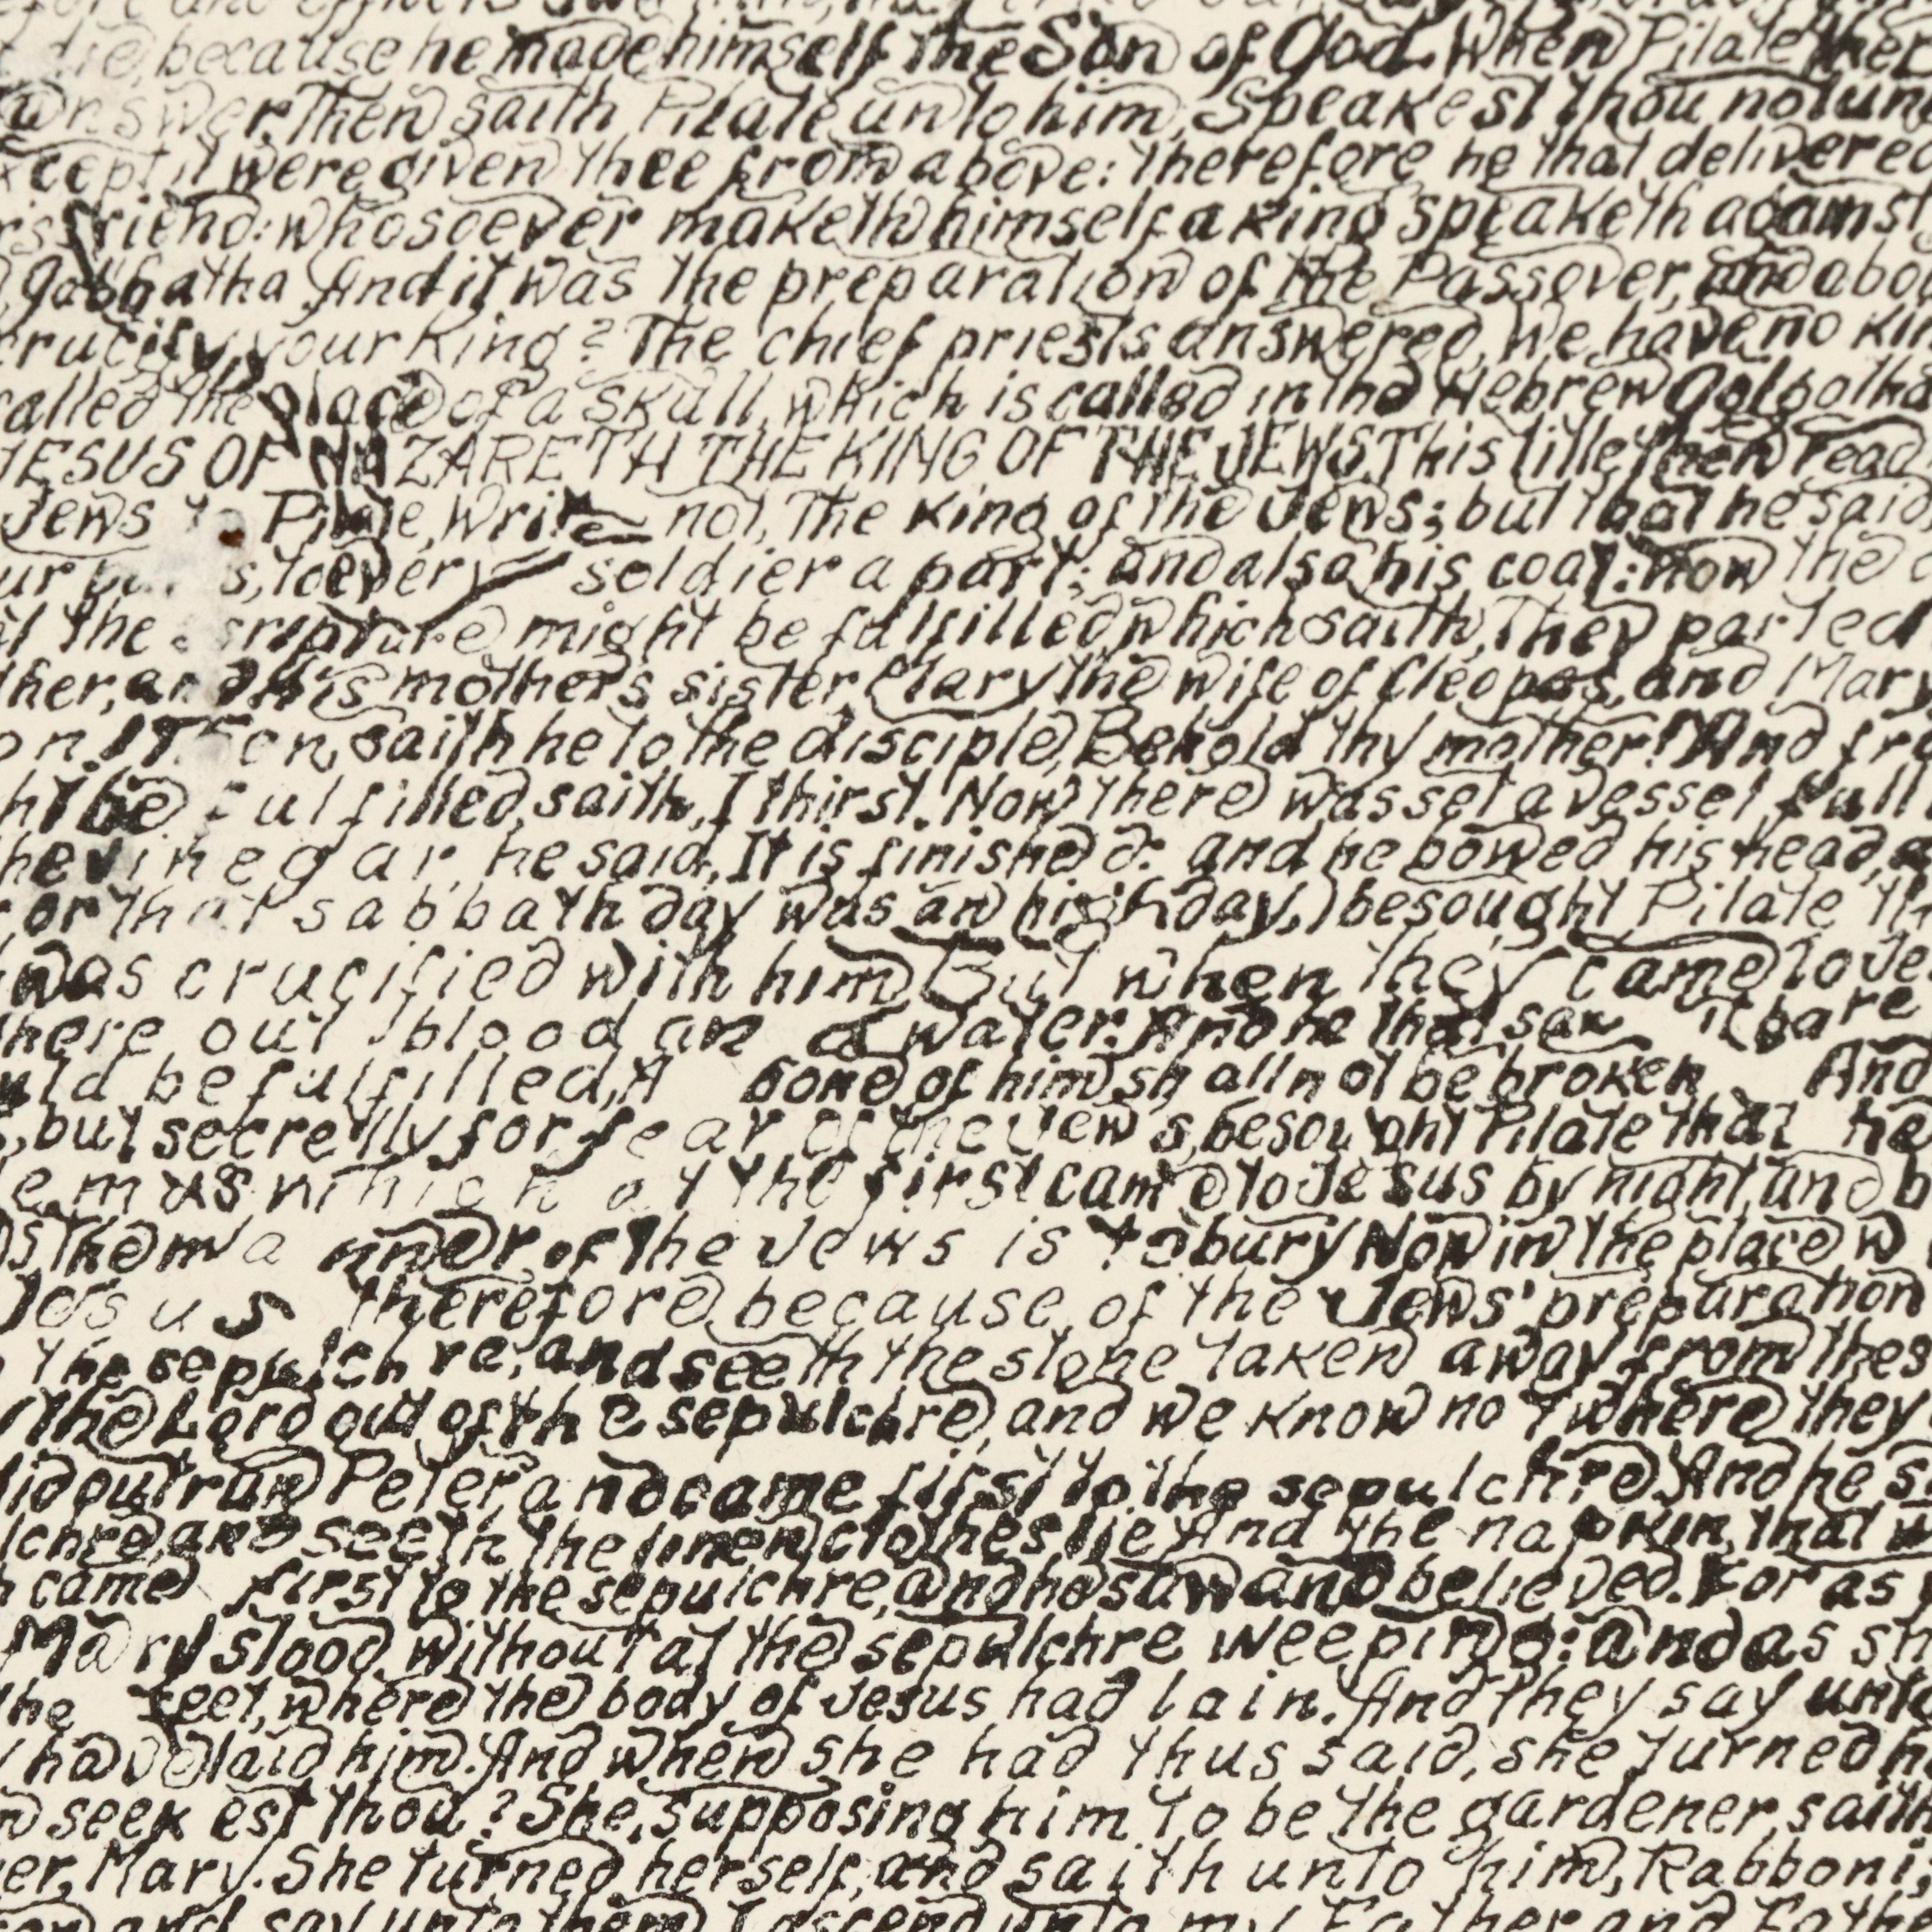 die, because he made himself the Son of God. When Pilate
answer. Then saith Pilate unto him, Speakest thou not un
xcept it were given thee from above: therefore he that delivered
r's friend: whosoever maketh himself a king speaketh against
Gabbatha And it was the preparation of the Passover, and abo
crucify your King? The chief priests answered, We have no kin
called the place of a skull, which is called in the Hebrew Golgotha
JESUS OF NAZARETH THE KING OF THE JEWS. This title then read
Jews to Pilate, Write not, The King of the Jews; but that he said
s, to every soldier a part; and also his coat: now the
the scripture might be fulfilled, which saith, They parted
ther, and his mother's sister, Mary the wife of Cleopas, and Mary
on! Then saith he to the disciple, Behold thy mother! And fro
ht be fulfilled, saith, I thirst. Now there was set a vessel full
he vinegar, he said, It is finished: and he bowed his head,
for that sabbath day was an high day,) besought Pilate
was crucified with him But when they came to Je
there out blood an d water. And he that saw it bare
uld be fulfilled, A bone of him shall not be broken And
s, but secretly for fear of the Jews, besought Pilate that he
emus which at the first came to Jesus by night, and b
as the manner of the Jews is to bury Now in the place w
Jesus therefore because of the Jews' preparation
the sepulchre, and seeth the stone taken away from the s
the Lord out of the sepulchre, and we know not where they
did outrun Peter, and came first to the sepulchre And he s
lchre, and seeth the linen clothes lie And the napkin, that w
h came first to the sepulchre, and he saw and believed. For as
Mary stood without at the sepulchre weeping: and as sh
the feet, where the body of Jesus had lain. And they say unto
y have laid him. And when she had thus said, she turned h
m seekest thou? She, supposing him to be the gardener, saith
her, Mary. She turned herself, and saith unto him, Rabboni;
and say unto them I ascend unto my Father and Fath